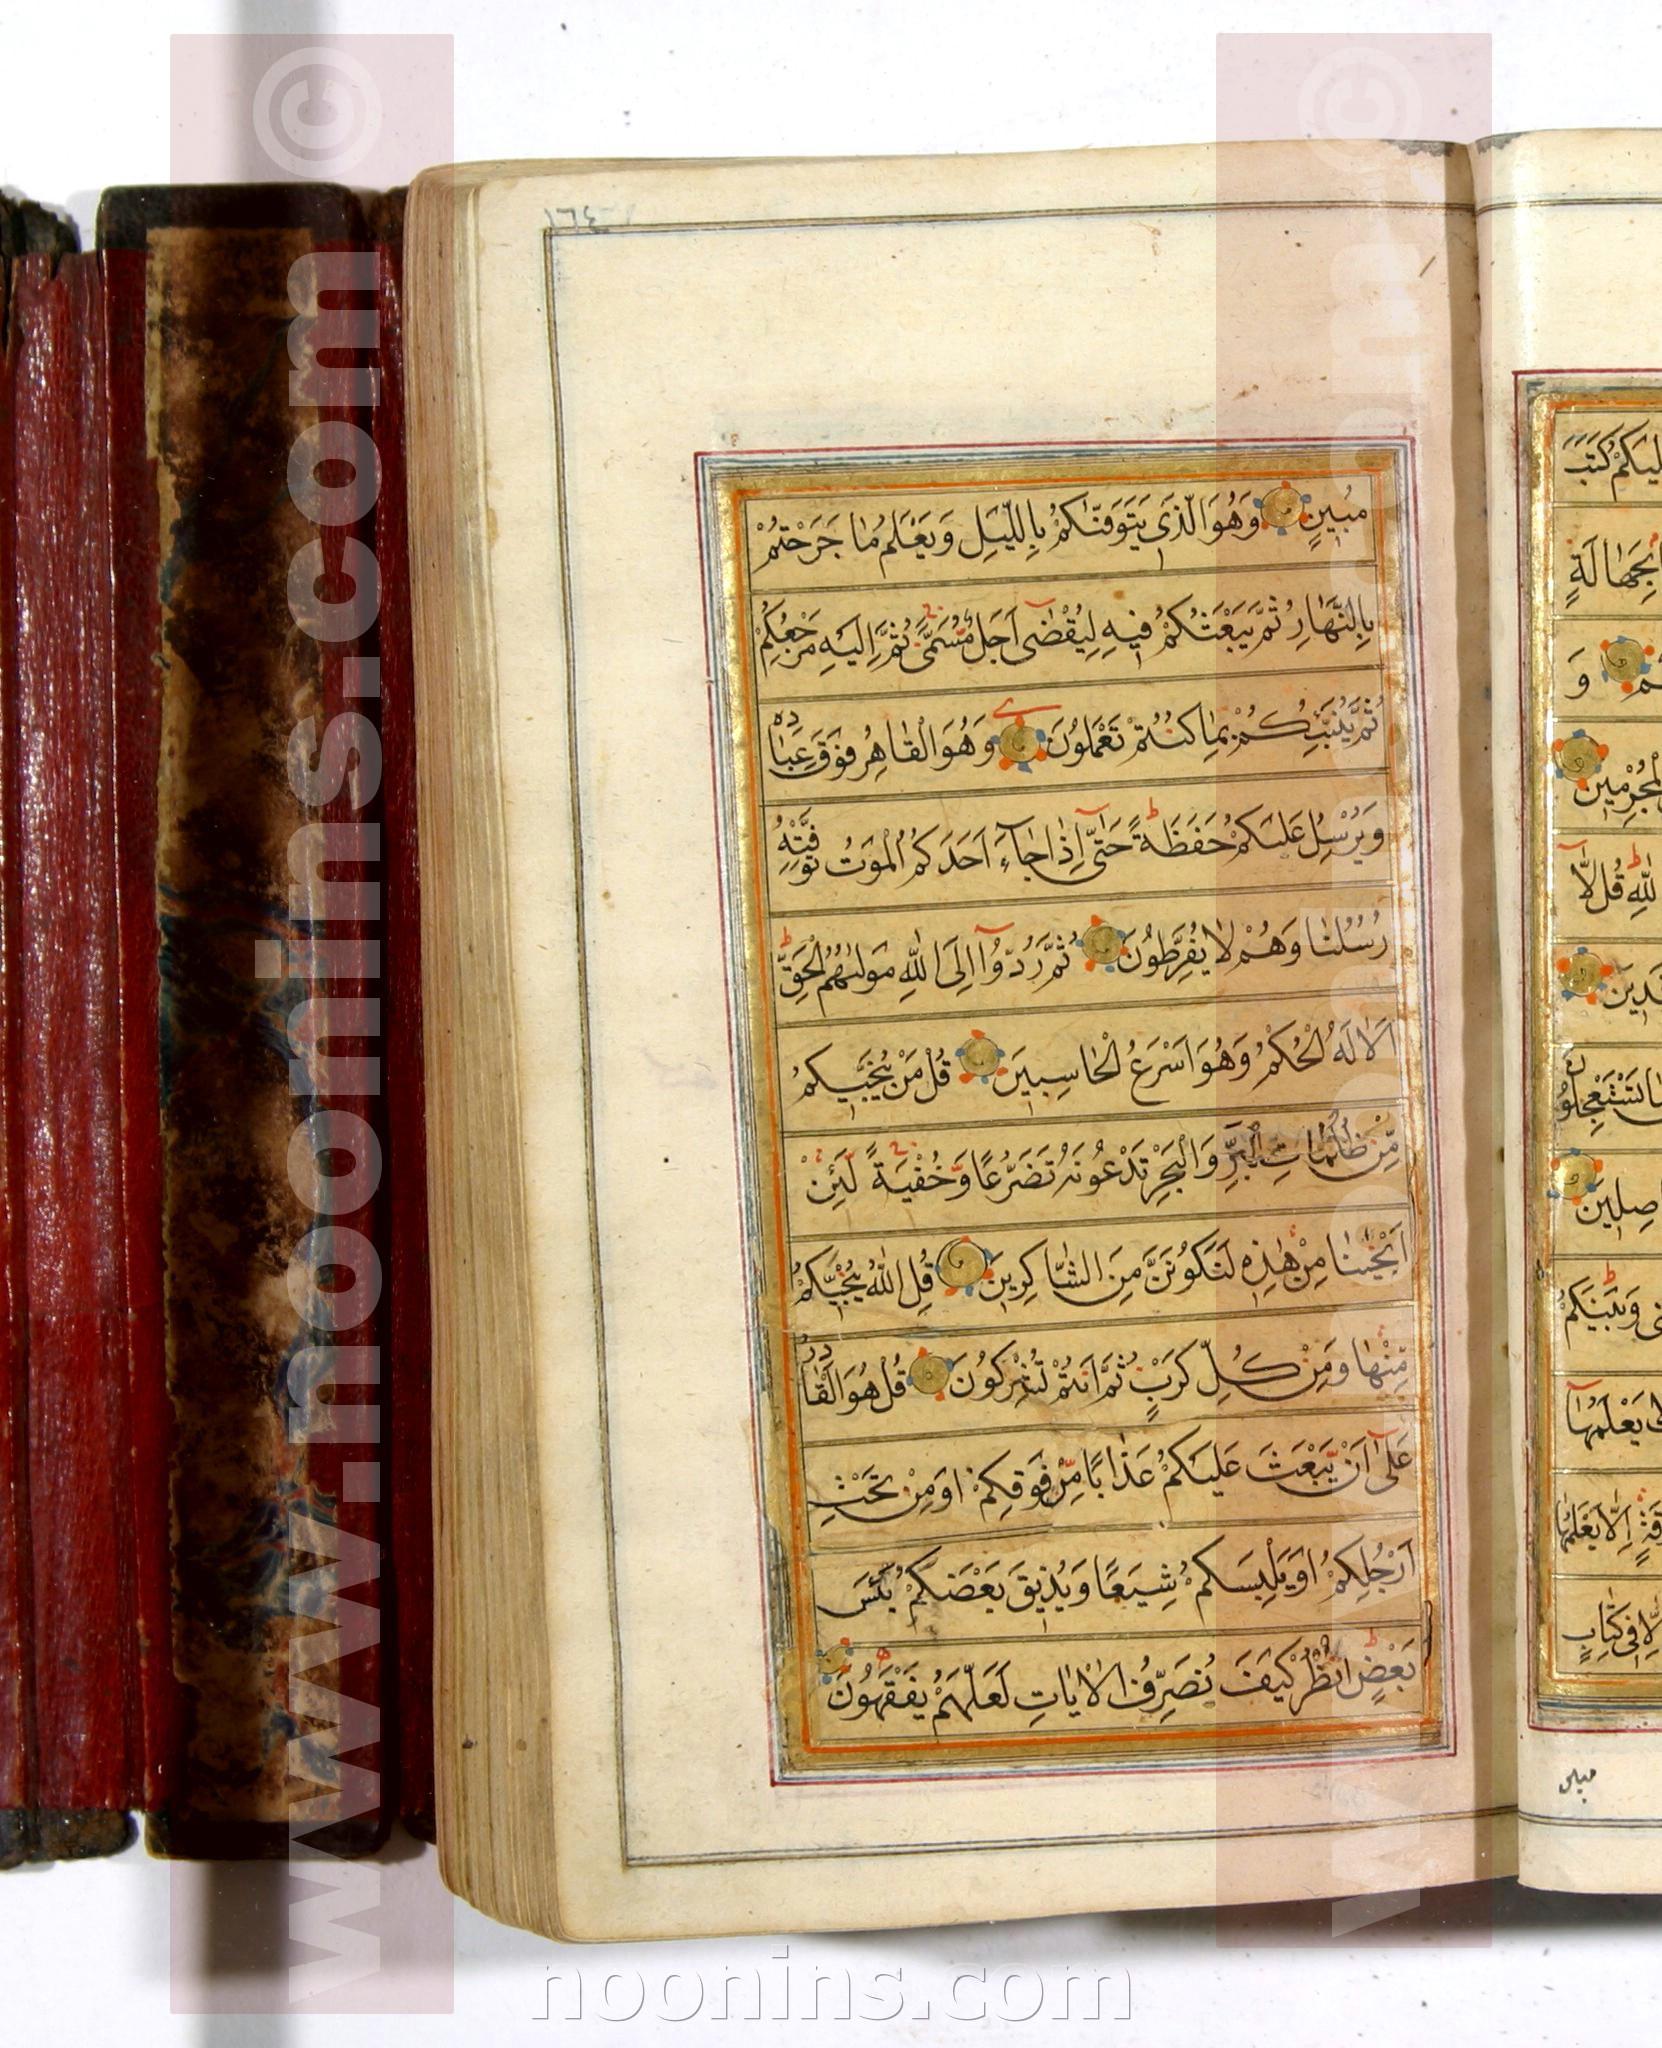 ١٦٤
مُبينٍ وَهُوَ الَّذي يَتَوَفّٰىكُمْ بِاللَّيْلِ وَيَعْلَمُ مٰا جَرَحْتُمْ
بِالنَّهٰارِ ثُمَّ يَبْعَثُكُمْ فيهِ لِيُقْضٰى اَجَلٌ مُسَمًّى ثُمَّ اِلَيْهِ مَرْجِعُكُمْ
ثُمَّ يُنَبِّئُكُمْ بِمٰا كُنْتُمْ تَعْمَلُونَ وَهُوَ الْقٰاهِرُ فَوْقَ عِبٰادِهِ
وَيُرْسِلُ عَلَيْكُمْ حَفَظَةً حَتّٰى اِذٰا جٰآءَ اَحَدَكُمُ الْمَوْتُ تَوَفَّتْهُ
رُسُلُنٰا وَهُمْ لٰا يُفَرِّطُونَ ثُمَّ رُدُّوآ اِلَى اللّٰهِ مَوْلٰىهُمُ الْحَقِّ
اَلٰا لَهُ الْحُكْمُ وَهُوَ اَسْرَعُ الْحٰاسِبينَ قُلْ مَنْ يُنَجّيكُمْ
مِنْ ظُلُمٰاتِ الْبَرِّ وَالْبَحْرِ تَدْعُونَهُ تَضَرُّعًا وَخُفْيَةً لَئِنْ
اَنْجَيْتَنٰا مِنْ هٰذِهِ لَنَكُونَنَّ مِنَ الشّٰاكِرينَ قُلِ اللّٰهُ يُنَجّيكُمْ
مِنْهٰا وَمِنْ كُلِّ كَرْبٍ ثُمَّ اَنْتُمْ تُشْرِكُونَ قُلْ هُوَ الْقٰادِرُ
عَلٰى اَنْ يَبْعَثَ عَلَيْكُمْ عَذٰابًا مِنْ فَوْقِكُمْ اَوْ مِنْ تَحْتِ
اَرْجُلِكُمْ اَوْ يَلْبِسَكُمْ شِيَعًا وَيُذيقَ بَعْضَكُمْ بَأْسَ
بَعْضٍ اُنْظُرْ كَيْفَ نُصَرِّفُ الْاٰيٰاتِ لَعَلَّهُمْ يَفْقَهُونَ
عَلَيْكُمْ كَتَبَ
بِجَهٰالَةٍ
وَ
الْمُجْرِمينَ
اللّٰهِ قُلْ لٰا
مُهْتَدينَ
مٰا تَسْتَعْجِلُونَ
الْفٰاصِلينَ
وَبَيْنَكُمْ
يَعْلَمُهٰا
وَرَقَةٍ اِلّٰا يَعْلَمُهٰا
اِلّٰا في كِتٰابٍ
مبین
www.noonins.com ©
www.noonins.com ©
noonins.com